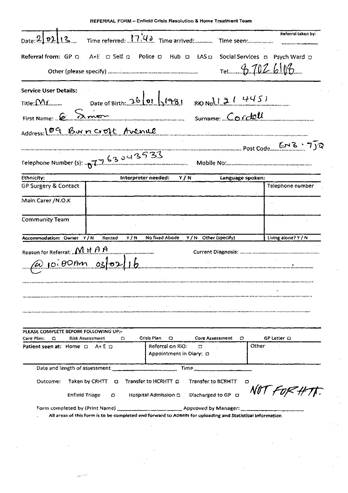 REFERRAL FORM – Enfield Crisis Resolution & Home Treatment Team
Referral taken by:
Date: 2/02/13 Time referred: 17:40 Time arrived: Time seen:
Referral from: GP □ A+E □ Self □ Police □ Hub □ LAS □ Social Services □ Psych Ward □
Other (please specify) Tel: 8702 6108
Service User Details:
Title: Mr Date of Birth: 26/01/1981 RiO No: 1214451
First Name: Simon Surname: Cordell
Address: 109 Burncroft Avenue
Post Code EN3 - 7JQ
Telephone Number (s): 07763043533 Mobile No:
Ethnicity: Interpreter needed: Y / N Language spoken:
GP Surgery & Contact Telephone number
Main Carer /N.O.K
Community Team
Accommodation: Owner Y / N Rented Y / N No fixed Abode Y / N Other (specify) Living alone? Y / N
Reason for Referral: MHAA Current Diagnosis:
@ 10:00am 03/02/16
PLEASE COMPLETE BEFORE FOLLOWING UP:-
Care Plan: □ Risk Assessment □ Crisis Plan □ Core Assessment □ GP Letter □
Patient seen at: Home □ A+E □ Referral on RiO: □ Other
Appointment in Diary: □
Date and length of assessment Time
Outcome: Taken by CRHTT □ Transfer to HCRHTT □ Transfer to BCRHTT □
NOT FOR HTT.
Enfield Triage □ Hospital Admission □ Discharged to GP □
Form completed by (Print Name) Approved by Manager:
All areas of this form is to be completed and forward to ADMIN for uploading and Statistical information